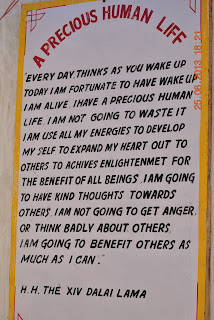 A PRECIOUS HUMAN LIFE
"EVERY DAY, THINKS AS YOU WAKE UP
TODAY I AM FORTUNATE TO HAVE WAKE UP
I AM ALIVE, I HAVE A PRECIOUS HUMAN
LIFE. I AM NOT GOING TO WASTE IT
I AM USE ALL MY ENERGIES TO DEVELOP
MY SELF TO EXPAND MY HEART OUT TO
OTHERS TO ACHIVES ENLIGHTENMET FOR
THE BENEFIT OF ALL BEINGS. I AM GOING
TO HAVE KIND THOUGHTS TOWARDS
OTHERS, I AM NOT GOING TO GET ANGER,
OR THINK BADLY ABOUT OTHERS,
I AM GOING TO BENEFIT OTHERS AS
MUCH AS I CAN".
H.H. THE XIV DALAI LAMA
25.06.2013 16:21